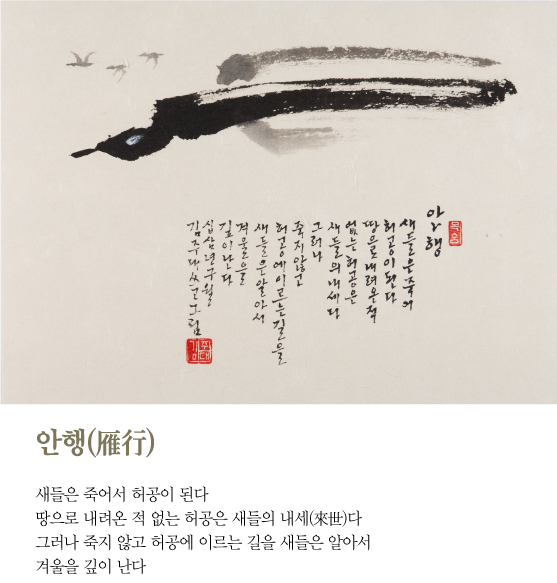 안행
새들은 죽어
허공이 된다
땅으로 내려온 적
없는 허공은
새들의 내세다
그러나
죽지 않고
허공에 이르는 길을
새들은 알아서
겨울을
깊이 난다
십삼년 구월
김주대 쓰고 그림
안행(雁行)
새들은 죽어서 허공이 된다
땅으로 내려온 적 없는 허공은 새들의 내세(來世)다
그러나 죽지 않고 허공에 이르는 길을 새들은 알아서
겨울을 깊이 난다